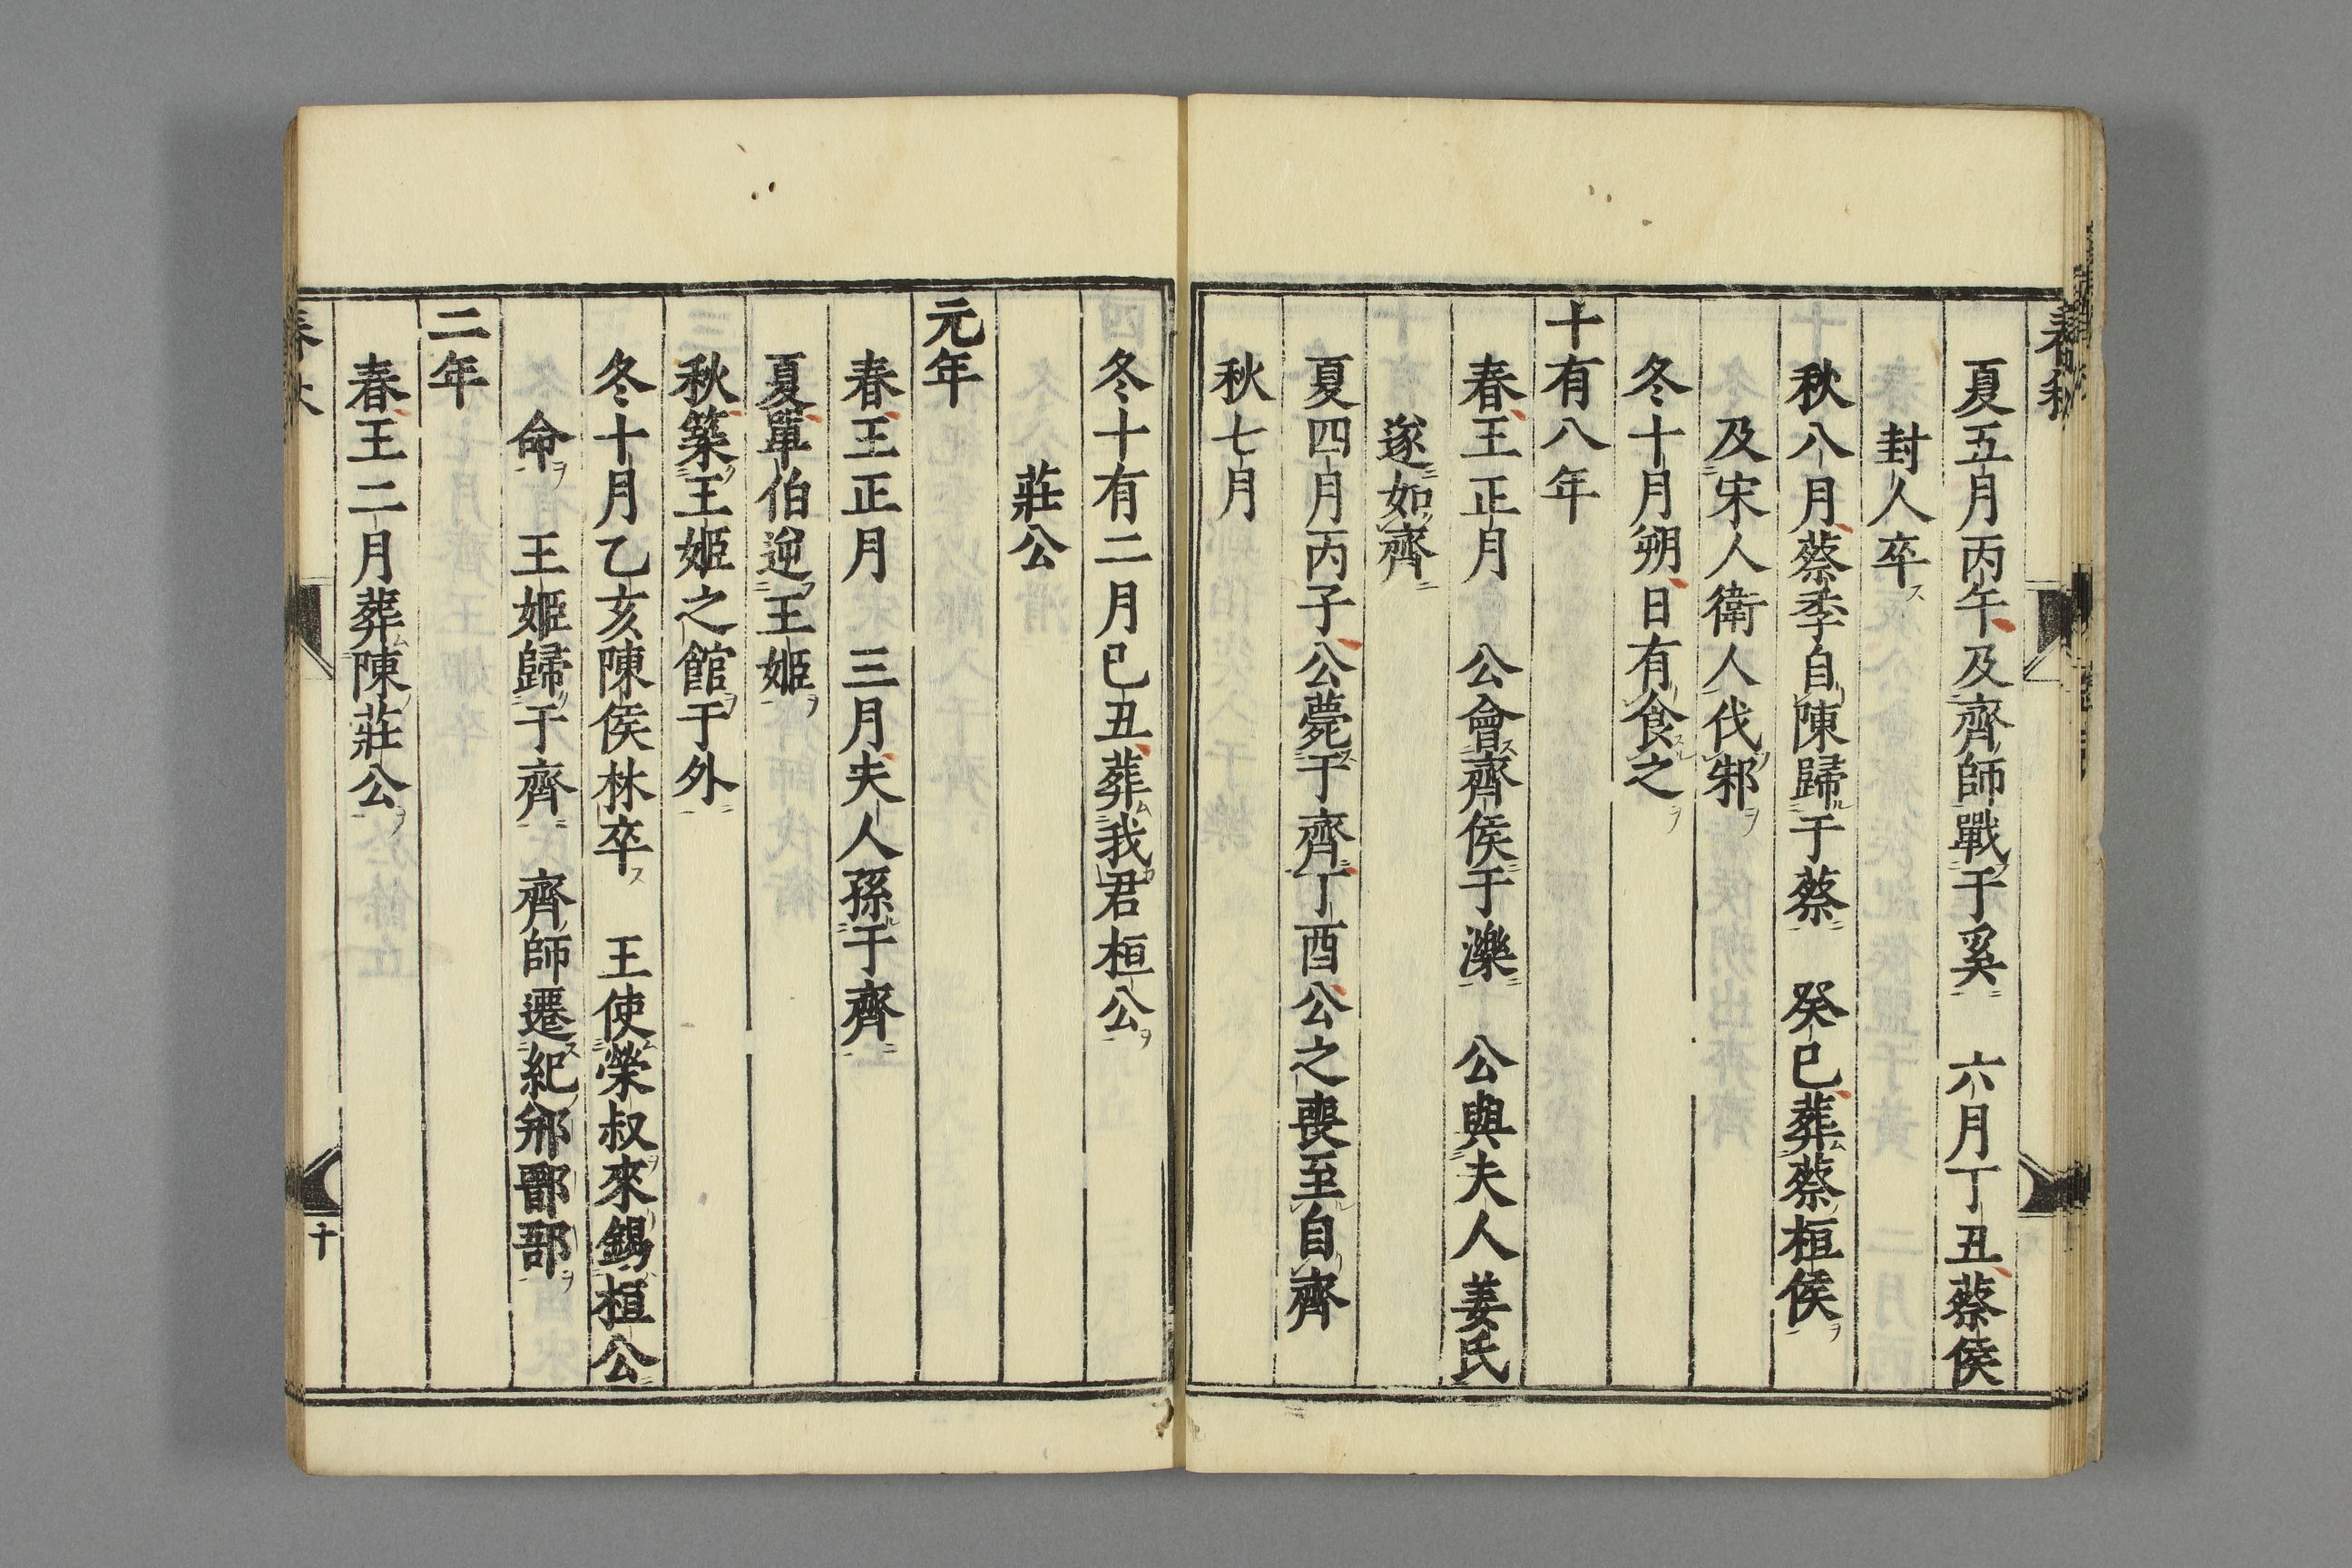 春秋
夏五月丙午及齊師戰于奚　六月丁丑蔡侯
封人卒
秋八月蔡季自陳歸于蔡　癸巳葬蔡桓侯
及宋人衛人伐邾
冬十月朔日有食之
十有八年
春王正月　公會齊侯于濼　公與夫人姜氏
遂如齊
夏四月丙子公薨于齊丁酉公之喪至自齊
秋七月
冬十有二月已丑葬我君桓公
莊公
元年
春王正月　三月夫人孫于齊
夏單伯逆王姬
秋築王姬之館于外
冬十月乙亥陳侯林卒　王使榮叔來錫桓公
命　王姬歸于齊　齊師遷紀郱鄑郚
二年
春王二月葬陳莊公
十